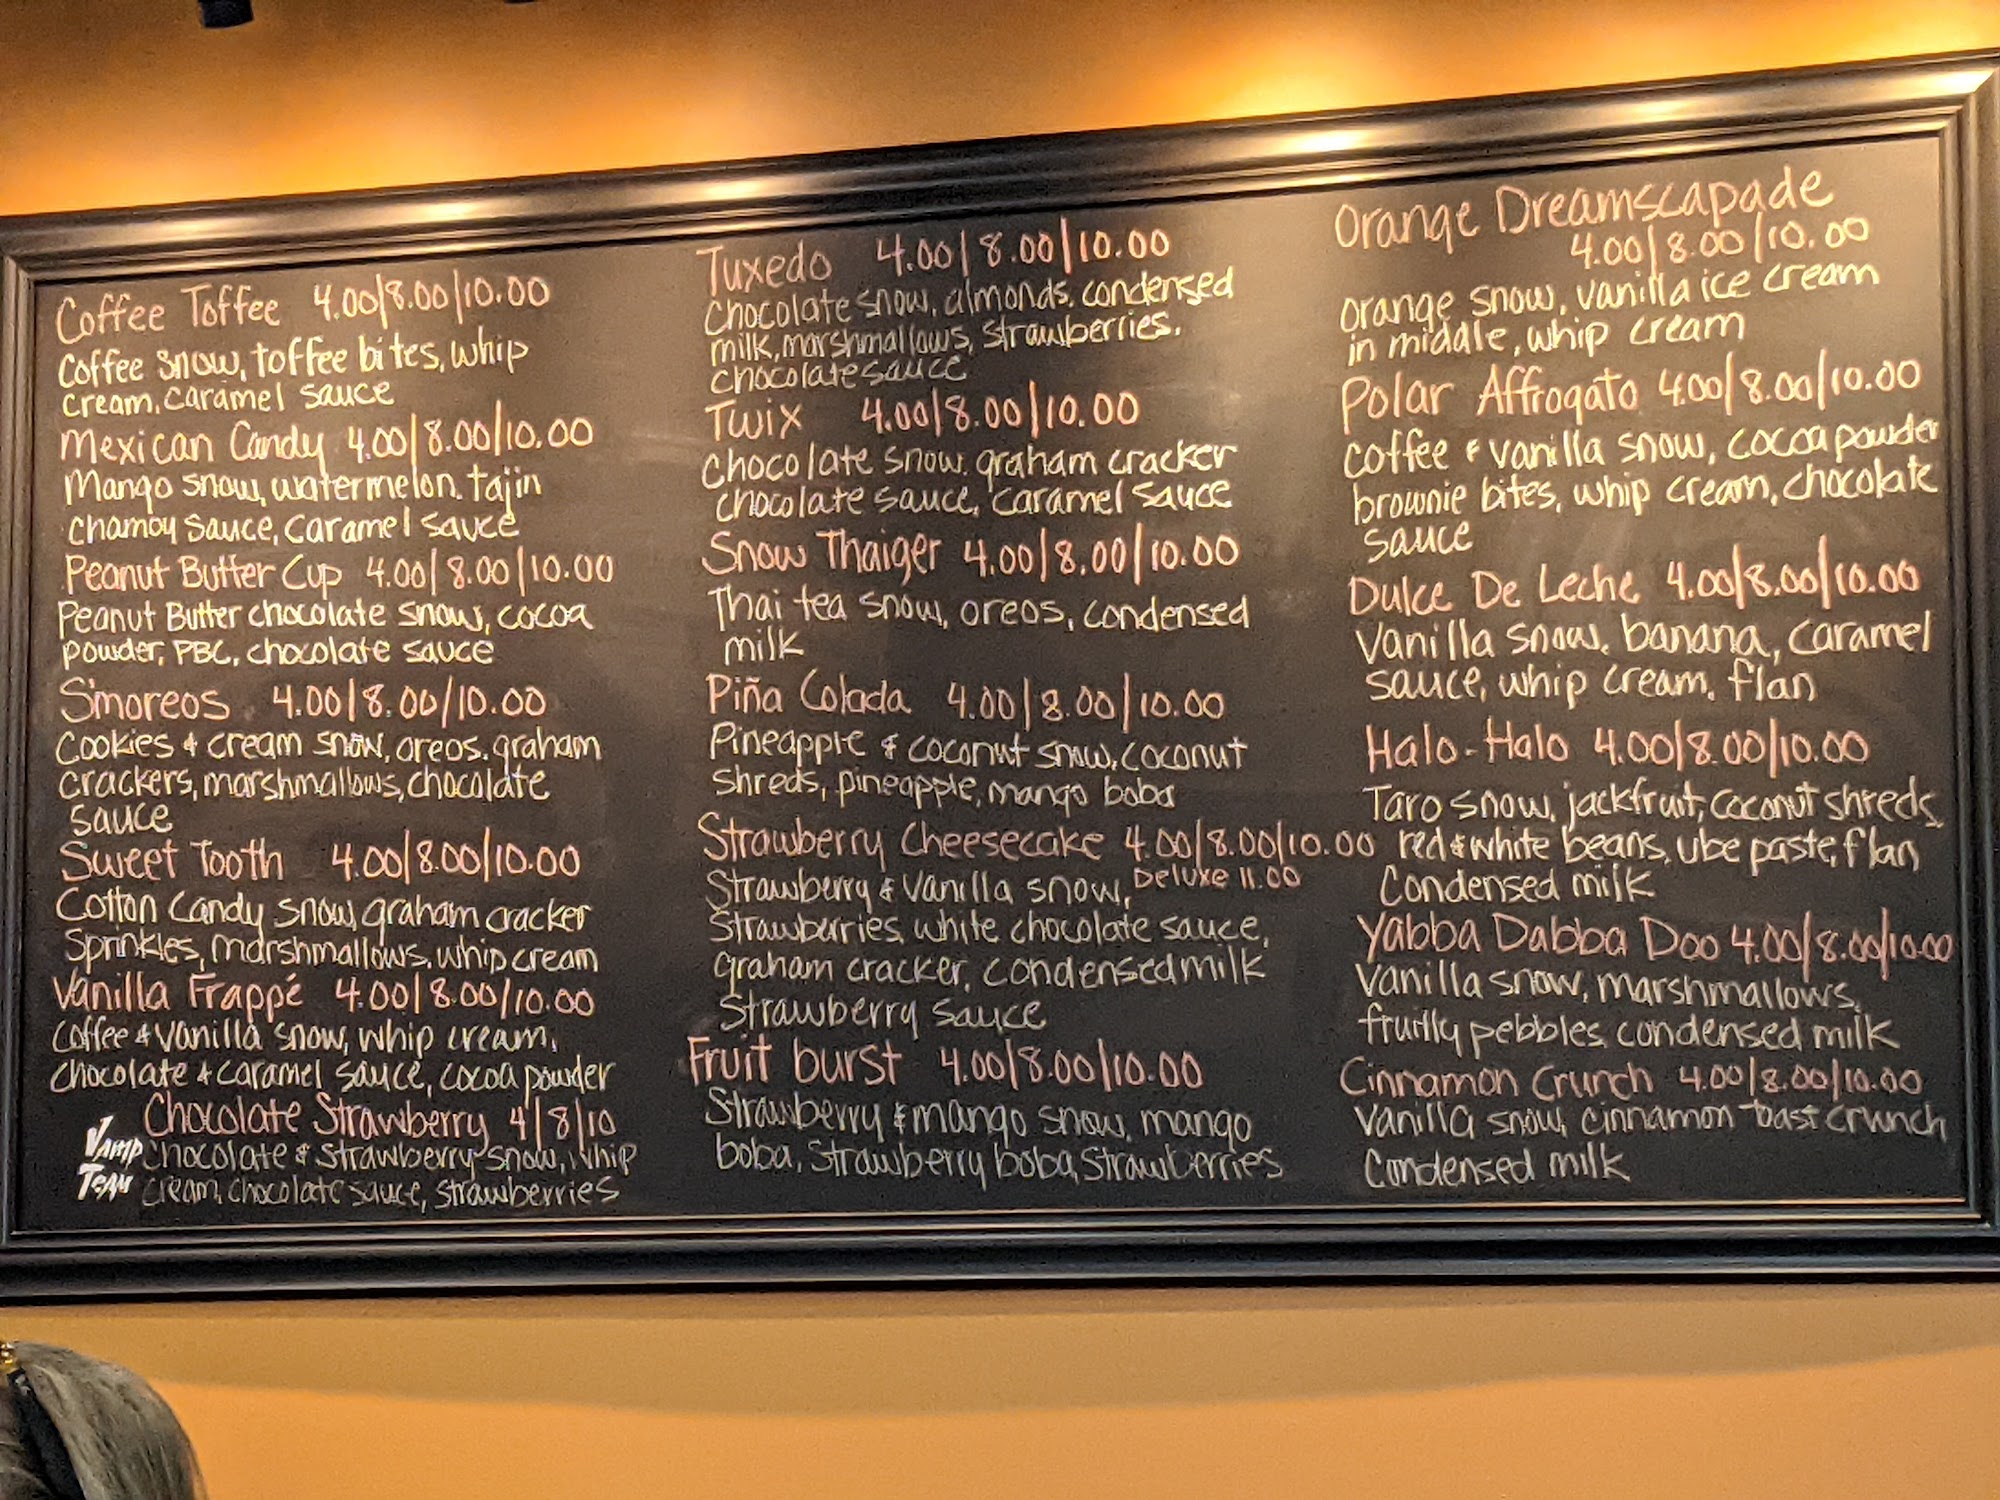 Coffee Toffee 4.00|8.00|10.00
Coffee snow, toffee bites, whip
cream, caramel sauce
Mexican Candy 4.00|8.00|10.00
Mango snow, watermelon, tajin
chamoy sauce, caramel sauce
Peanut Butter Cup 4.00|8.00|10.00
Peanut Butter chocolate snow, cocoa
powder, PBC, chocolate sauce
S'moreos 4.00|8.00|10.00
Cookies & cream snow, oreos, graham
crackers, marshmallows, chocolate
sauce
Sweet Tooth 4.00|8.00|10.00
Cotton Candy snow, graham cracker
Sprinkles, marshmallows, whip cream
Vanilla Frappé 4.00|8.00|10.00
Coffee & vanilla snow, whip cream,
chocolate & caramel sauce, cocoa powder
Chocolate Strawberry 4|8|10
Vamp
Team
Chocolate & strawberry snow, whip
cream, chocolate sauce, strawberries
Tuxedo 4.00|8.00|10.00
Chocolate snow, almonds, condensed
milk, marshmallows, strawberries,
chocolate sauce
Twix 4.00|8.00|10.00
Chocolate snow, graham cracker
chocolate sauce, caramel sauce
Snow Thaiger 4.00|8.00|10.00
Thai tea snow, oreos, condensed
milk
Piña Colada 4.00|8.00|10.00
Pineapple & coconut snow, coconut
shreds, pineapple, mango boba
Strawberry Cheesecake 4.00|8.00|10.00
Deluxe 11.00
Strawberry & vanilla snow,
Strawburries, white chocolate sauce,
graham cracker, condensed milk
Strawberry sauce
Fruit burst 4.00|8.00|10.00
Strawberry & mango snow, mango
boba, strawberry boba, strawberries
Orange Dreamscapade
4.00|8.00|10.00
orange snow, vanilla ice cream
in middle, whip cream
Polar Affrogato 4.00|8.00|10.00
Coffee & vanilla snow, cocoa powder
brownie bites, whip cream, chocolate
sauce
Dulce De Leche 4.00|8.00|10.00
Vanilla snow, banana, caramel
sauce, whip cream, flan
Halo-Halo 4.00|8.00|10.00
Taro snow, jackfruit, coconut shreds,
red & white beans, ube paste, flan
Condensed milk
Yabba Dabba Doo 4.00|8.00|10.00
Vanilla snow, marshmallows,
fruilly pebbles, condensed milk
Cinnamon Crunch 4.00|8.00|10.00
Vanilla snow, cinnamon toast crunch
Condensed milk